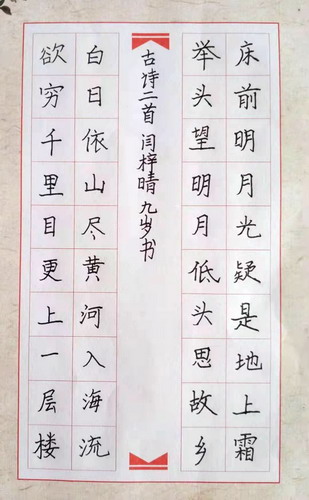 床前明月光疑是地上霜
举头望明月低头思故乡
古诗二首 闫梓晴 九岁书
白日依山尽黄河入海流
欲穷千里目更上一层楼